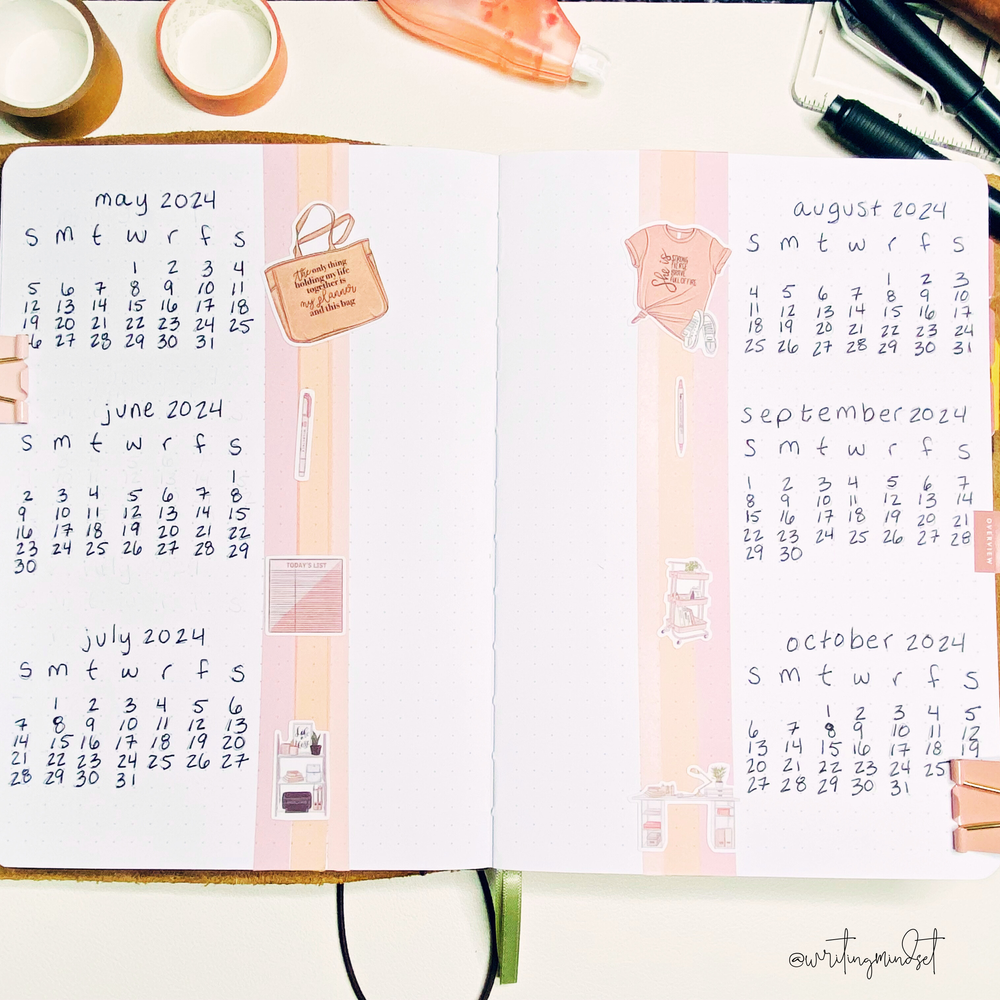 may 2024
S m t w r f S
1 2 3 4
5 6 7 8 9 10 11
12 13 14 15 16 17 18
19 20 21 22 23 24 25
26 27 28 29 30 31
june 2024
S m t w r f S
1
2 3 4 5 6 7 8
9 10 11 12 13 14 15
16 17 18 19 20 21 22
23 24 25 26 27 28 29
30
july 2024
S m t w r f S
1 2 3 4 5 6
7 8 9 10 11 12 13
14 15 16 17 18 19 20
21 22 23 24 25 26 27
28 29 30 31
the only thing
holding my life
together is
my planner
and this bag
TODAY'S LIST
She is
STRONG
FIERCE
BRAVE
FULL OF FIRE
august 2024
S m t w r f S
1 2 3
4 5 6 7 8 9 10
11 12 13 14 15 16 17
18 19 20 21 22 23 24
25 26 27 28 29 30 31
september 2024
S m t w r f S
1 2 3 4 5 6 7
8 9 10 11 12 13 14
15 16 17 18 19 20 21
22 23 24 25 26 27 28
29 30
OVERVIEW
october 2024
S m t w r f S
1 2 3 4 5
6 7 8 9 10 11 12
13 14 15 16 17 18 19
20 21 22 23 24 25
27 28 29 30 31
@writingmindset